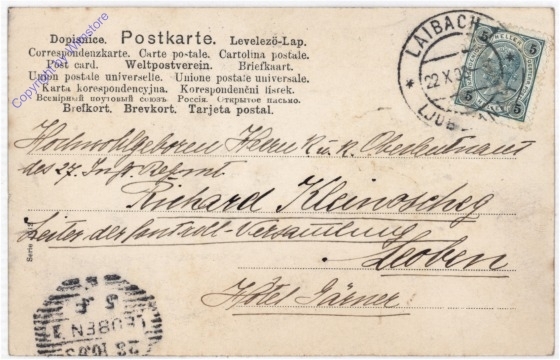 Dopisnice. Postkarte. Levelező-Lap.
Correspondenzkarte. Carte postale. Cartolina postale.
Post card. Weltpostverein. Briefkaart.
Union postale universelle. Unione postale universale.
Karta korespondencyjna. Korespondenčni listek.
Всемірный почтовый союзъ Россія. Открытое письмо.
Brefkort. Brevkort. Tarjeta postal.
Copyright by Mxxstore
LAIBACH
22 X 0
LJUB
5 5
5 5
Hochwohlgeboren Herrn k. u. k. Oberleutnant
des 27. Inf. Regmt
Richard Kleinoscheg
Leiter der Controll-Versammlung
Leoben
Hôtel Gärner
Serie
LEOBEN
23 10 0